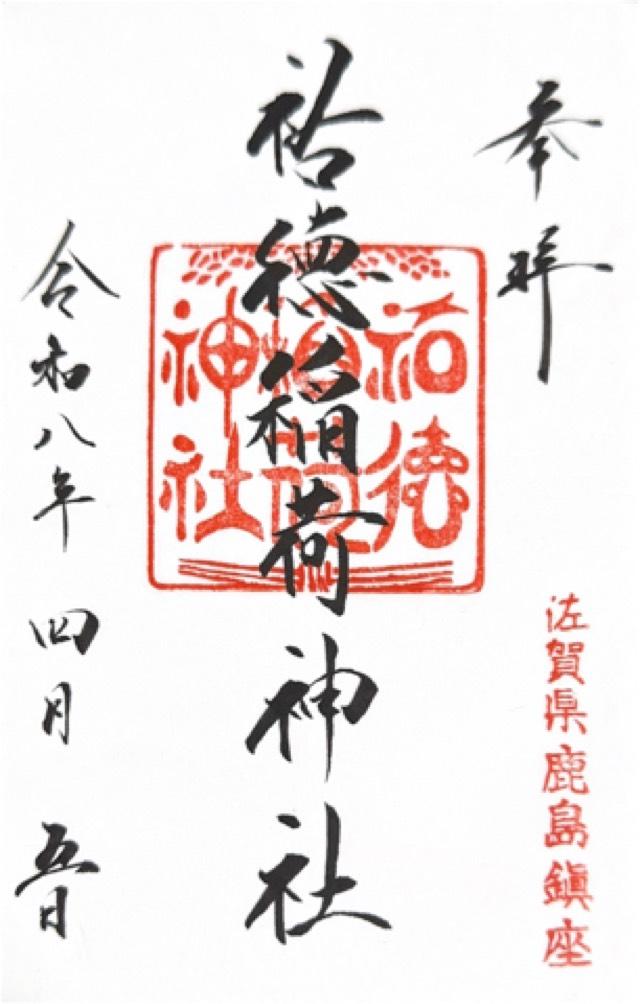 奉拝
佐賀県鹿島鎮座
祐徳稲荷神社
祐徳
稲荷
神社
令和八年 四月 五日